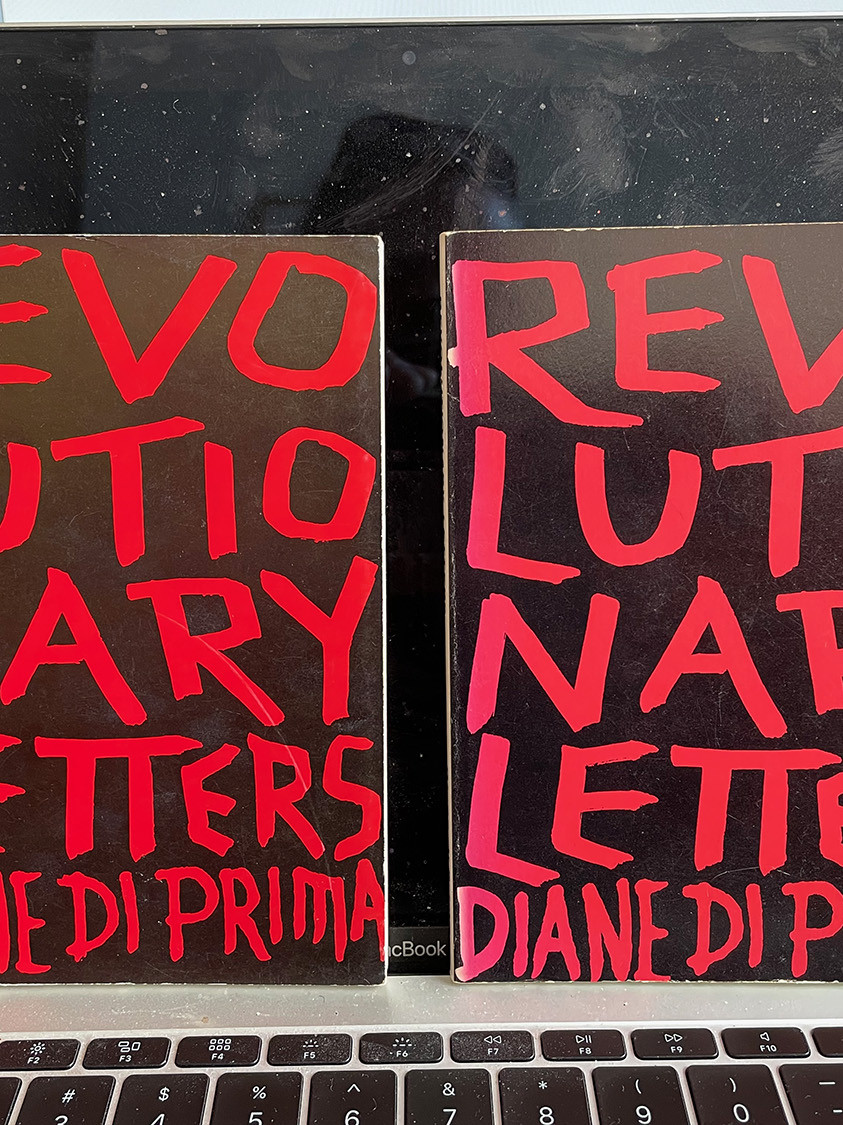 EVO
UTIO
ARY
ETTERS
NE DI PRIMA
REV
LUT
NAR
LETTE
DIANE DI P
acBook
F2
F3
F4
F5
F6
F7
F8
F9
F10
# $ % ^ & * ( ) —
3 4 5 6 7 8 9 0